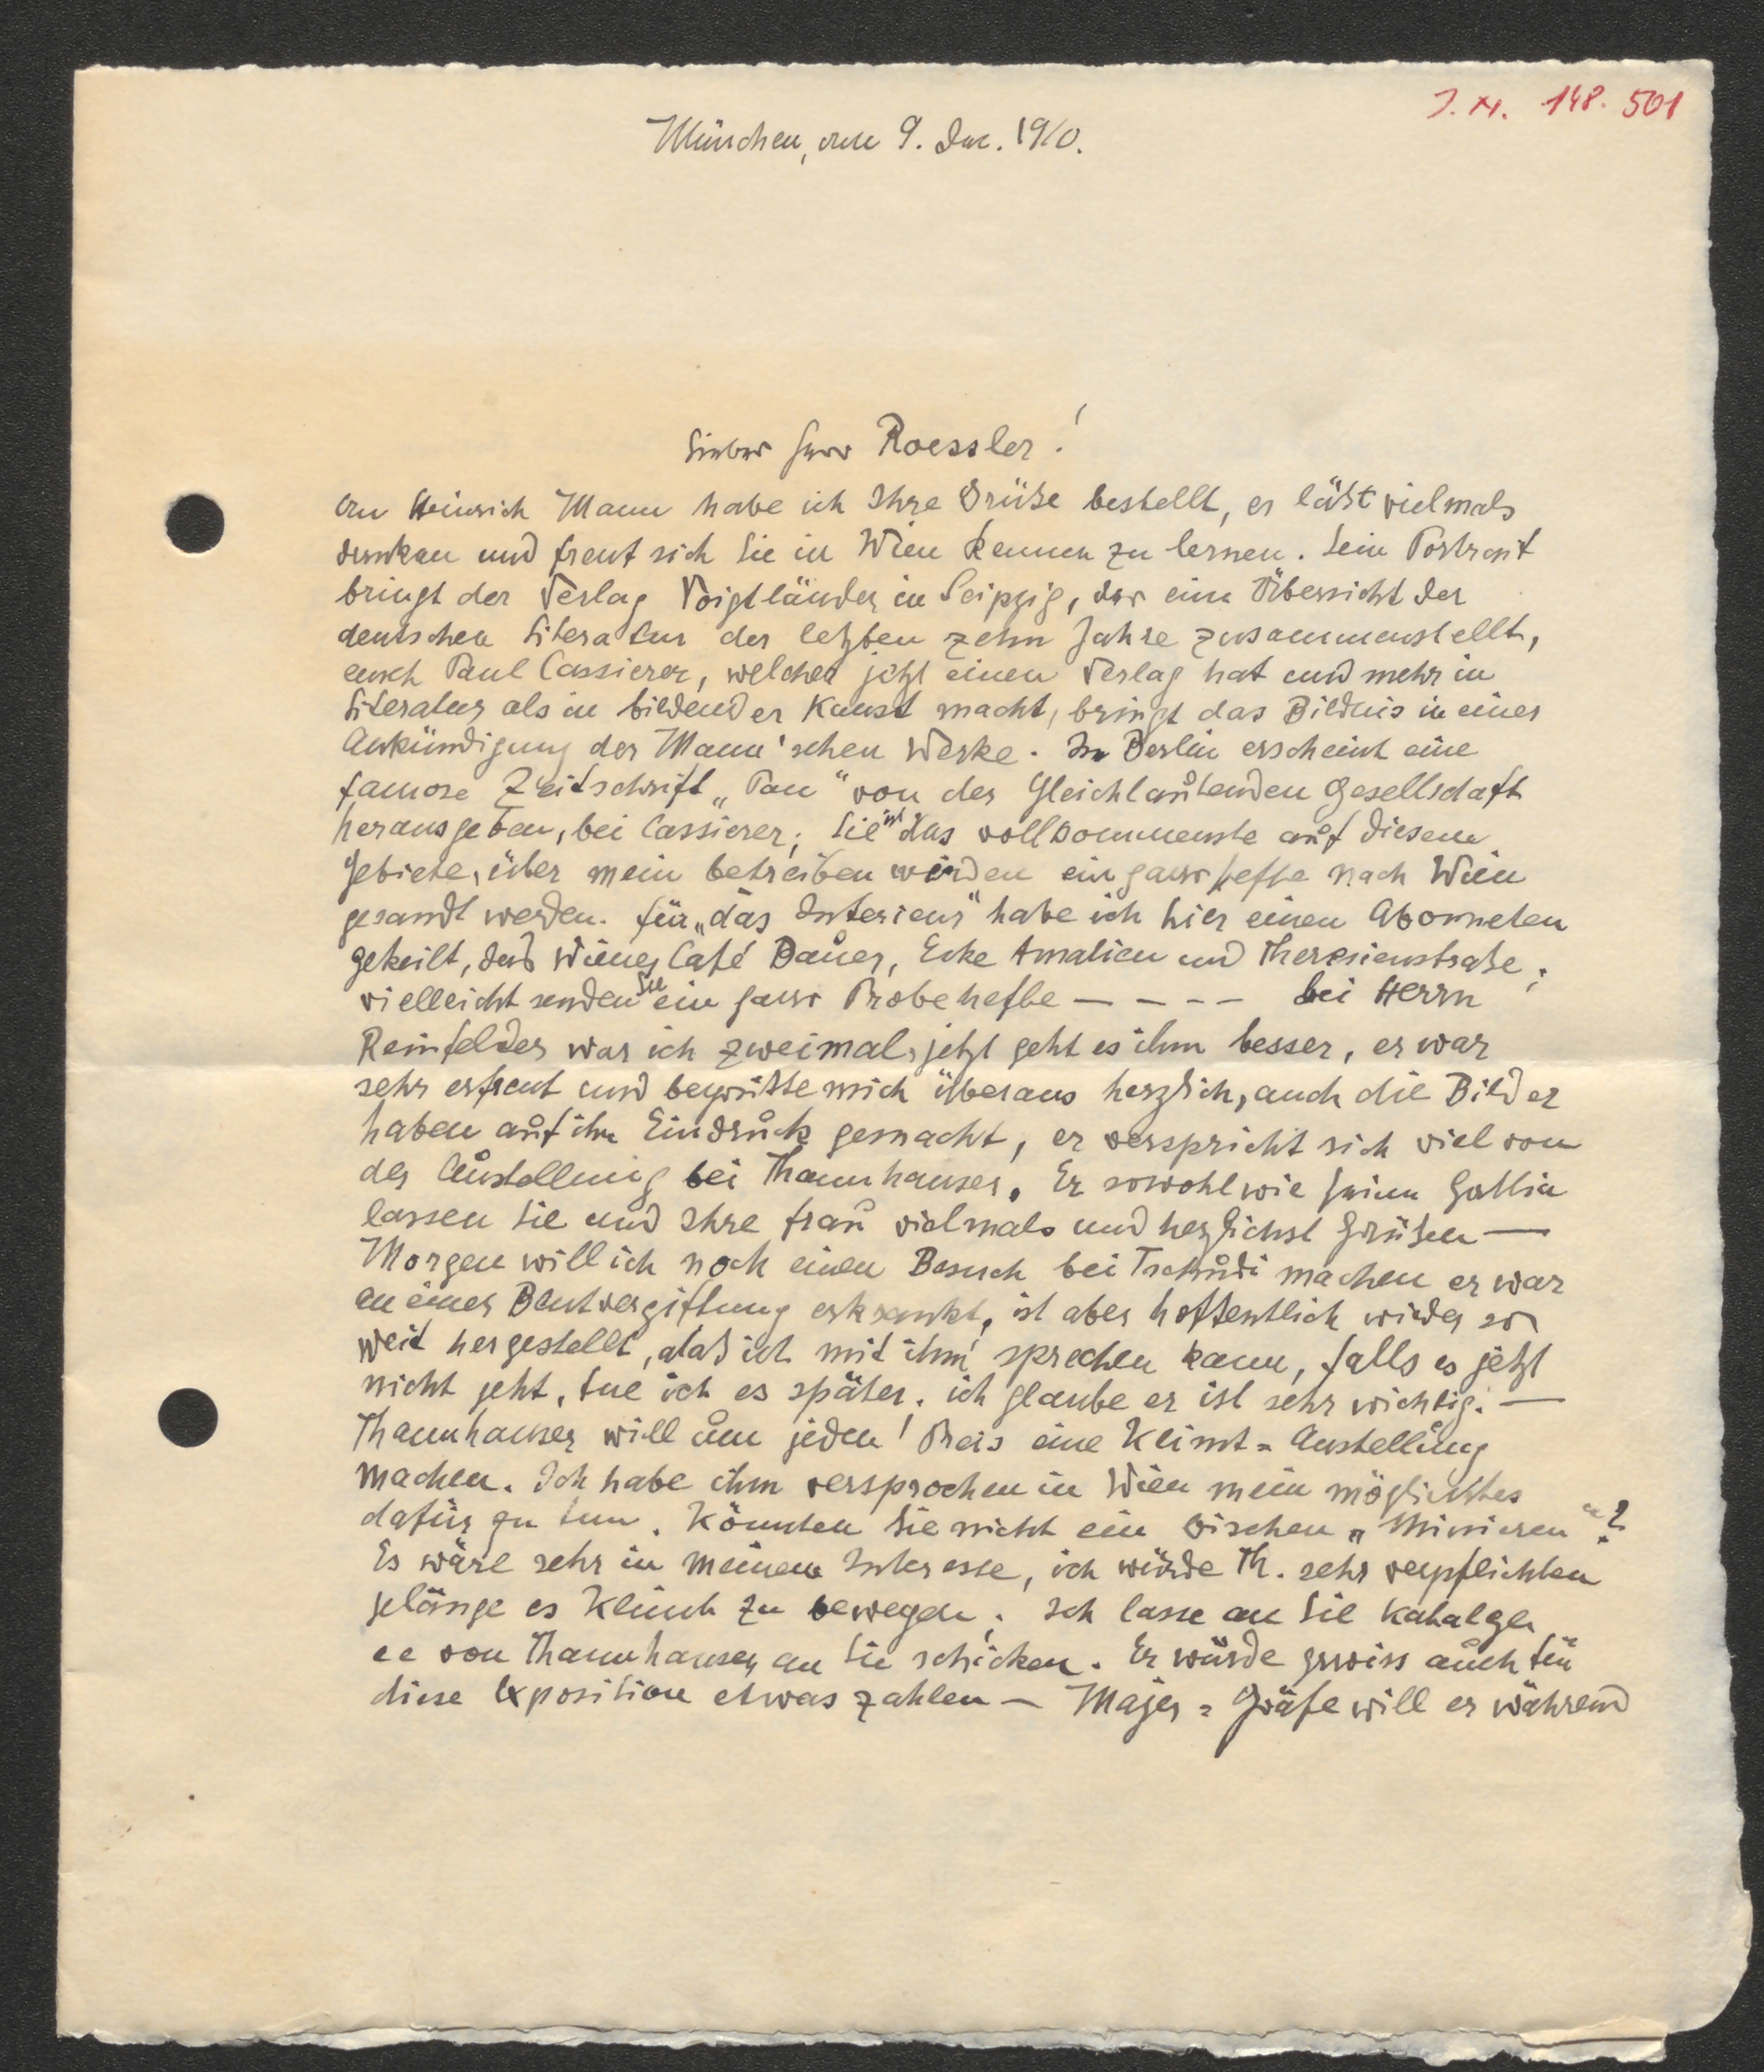 J. N. 148.501
München, am 9. Dez. 1910.
Lieber Herr Roessler!
An Heinrich Mann habe ich Ihre Grüße bestellt, er läßt vielmals
danken und freut sich Sie in Wien kennen zu lernen. Sein Portrait
bringt der Verlag Voigtländer in Leipzig, der eine Übersicht der
deutschen Literatur der letzten zehn Jahre zusammenstellt,
auch Paul Cassierer, welcher jetzt einen Verlag hat und mehr in
Literatur als in bildender Kunst macht, bringt das Bildnis in einer
Ankündigung der Mann'schen Werke. In Berlin erscheint eine
famose Zeitschrift „Pan“ von der Gleichlautenden Gesellschaft
herausgeben, bei Cassierer; Sie ist das vollkommenste auf diesem
Gebiete, über mein betreiben würden ein paar Hefte nach Wien
gesandt werden. für „das Interieur“ habe ich hier einen Abonneten
gekeilt, das Wiener Café Bauer, Ecke Amalien und Theresienstraße;
vielleicht senden Sie ein paar Probehefte – – – – bei Herrn
Reinfelder war ich zweimal, jetzt geht es ihm besser, er war
sehr erfreut und begrüßte mich überaus herzlich, auch die Bilder
haben auf ihn Eindruck gemacht, er verspricht sich viel von
der Austellung bei Thannhauser. Er sowohl wie seine Gattin
lassen Sie und Ihre Frau vielmals und herzlichst Grüßen —
Morgen will ich noch einen Besuch bei Tschudi machen er war
an einer Blutvergiftung erkrankt, ist aber hoffentlich wieder so
weit hergestellt, daß ich mit ihm sprechen kann, falls es jetzt
nicht geht, tue ich es später. ich glaube er ist sehr wichtig. —
Thannhauser will um jeden Preis eine Klimt = Austellung
machen. Ich habe ihm versprochen in Wien mein möglichstes
dafür zu tun. Könnten Sie nicht ein bischen „Minieren“?
Es wäre sehr in meinem Interesse, ich würde Th. sehr verpflichten
gelänge es Klimt zu bewegen. Ich lasse an Sie Kataloge
von Thannhauser an Sie schicken. Er würde gewiss auch für
diese Exposition etwas zahlen – Majer = Gräfe will er während